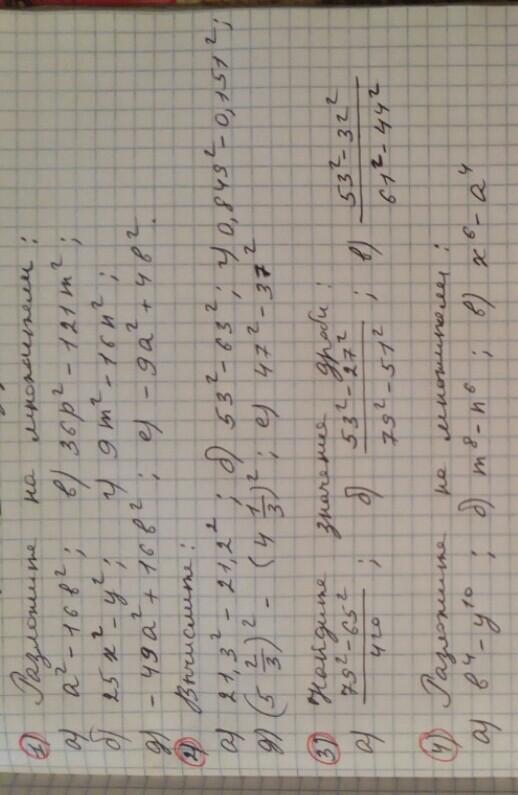 1) Разложите на множители:
а) a² - 16b²; в) 36p² - 121m²;
б) 25x² - y²; г) 9m² - 16n²;
д) - 49a² + 16b²; е) - 9a² + 4b².
2) Вычислите:
а) 21,3² - 21,2²; б) 53² - 63²; г) 0,849² - 0,151²;
д) (5 2/3)² - (4 1/3)²; е) 47² - 37²
3) Найдите значение дроби:
а) 79² - 65² / 420; б) 53² - 27² / 79² - 51²; в) 53² - 32² / 61² - 44²
4) Разложите на множители:
а) b⁴ - y¹⁰; б) m⁸ - n⁶; в) x⁶ - a⁴